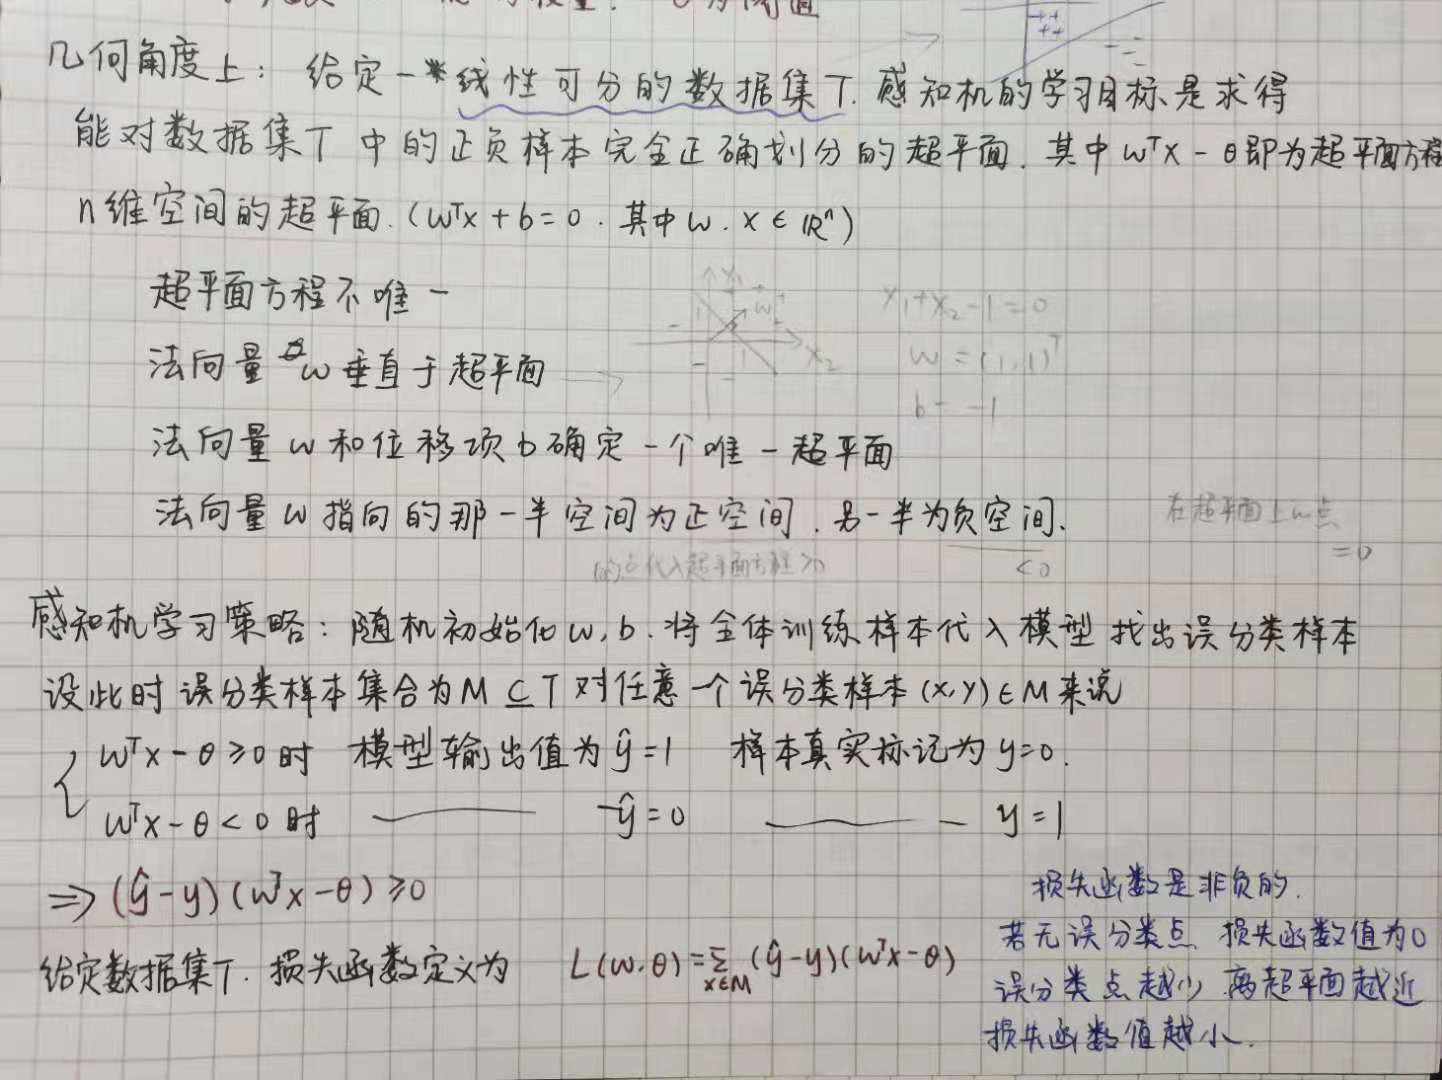 几何角度上：给定一线性可分的数据集T.感知机的学习目标是求得
能对数据集T中的正负样本完全正确划分的超平面.其中wᵀx-θ即为超平面方程
n维空间的超平面.(wᵀx+b=0.其中w.x∈ℝⁿ)
超平面方程不唯一
x₁
w
x₂
x₁+x₂-1=0
w=(1,1)ᵀ
b=-1
法向量w垂直于超平面
法向量w和位移项b确定一个唯一超平面
法向量w指向的那一半空间为正空间.另一半为负空间.
的点代入超平面方程≥0
<0
在超平面上的点
=0
感知机学习策略：随机初始化w,b.将全体训练样本代入模型找出误分类样本
设此时误分类样本集合为M⊆T对任意一个误分类样本(x,y)∈M来说
wᵀx-θ≥0时 模型输出值为ŷ=1 样本真实标记为y=0.
wᵀx-θ<0时 —— ŷ=0 —— y=1
⇒(ŷ-y)(wᵀx-θ)≥0
给定数据集T.损失函数定义为 L(w.θ)=∑x∈M(ŷ-y)(wᵀx-θ)
损失函数是非负的.
若无误分类点 损失函数值为0
误分类点越少 离超平面越近
损失函数值越小.